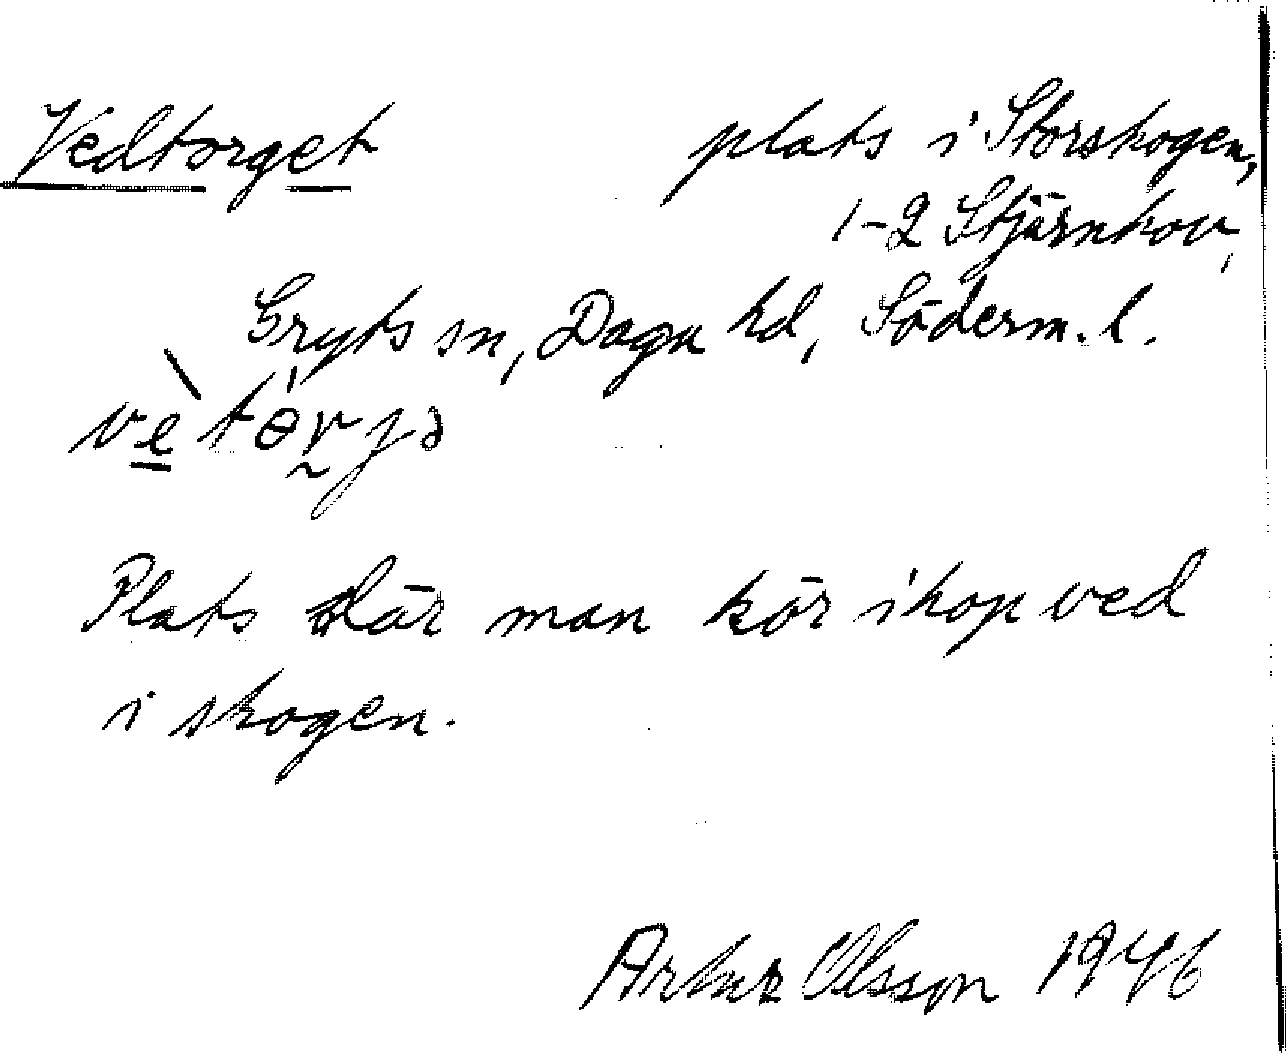 Vedtorget plats i Storskogen,
1-2 Stjärnhov,
Gryts sn, Daga hd, Söderm. l.
Plats där man kör ihop ved
i skogen.
Artur Olsson 1946